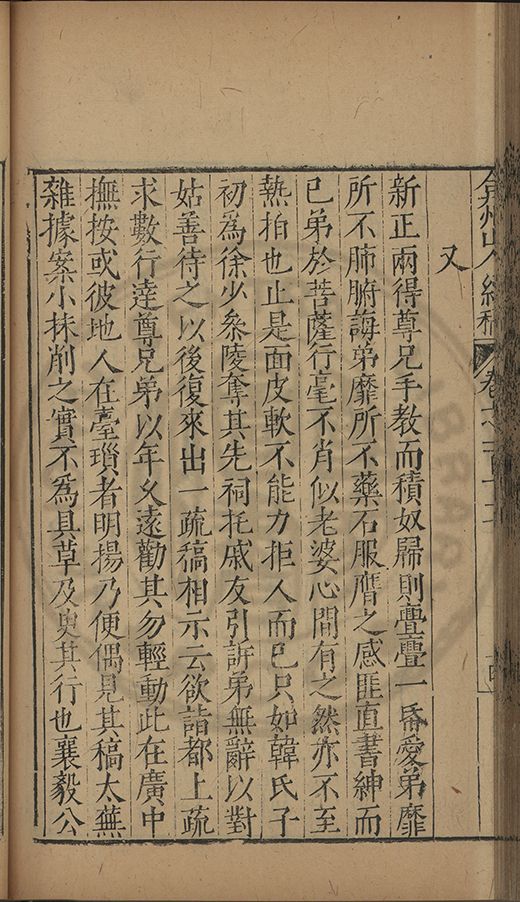 弇州山人續稿 卷之一百
又
新正兩得尊兄手教而積奴歸則亹亹一㡬愛弟靡
所不肺腑誨弟靡所不藥石服膺之感匪直書紳而
已弟於菩薩行毫不肖似老婆心間有之然亦不至
熱拍也止是面皮軟不能力拒人而已只如韓氏子
初為徐少叅陵奪其先祠托戚友引訴弟無辭以對
姑善待之以後復來出一疏稿相示云欲詣都上疏
求數行達尊兄弟以年乆遠勸其勿輕動此在廣中
撫按或彼地人在臺瑣者明揚乃便偶見其稿太蕪
雜據案小抹削之實不為具草及㬰其行也襄毅公